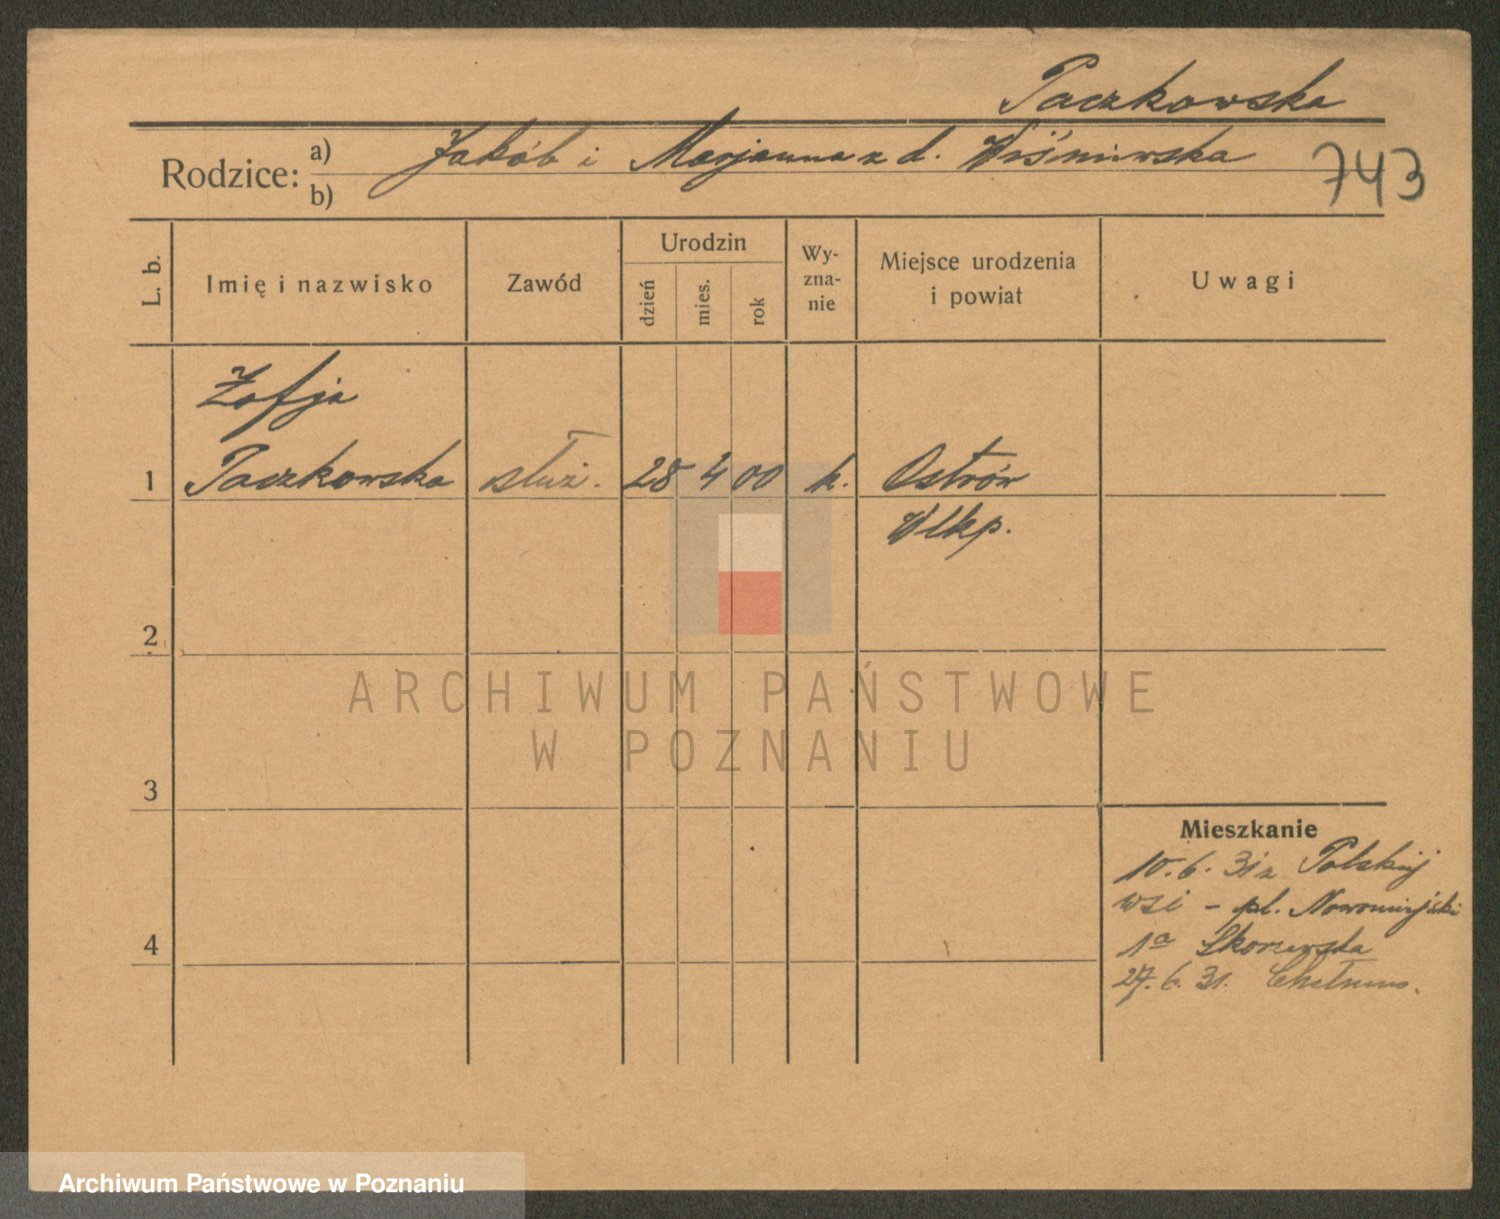 Paczkowska
Rodzice: a) Jakób i Marjanna z d. Wiśniewska
b)
743
L. b.
Imię i nazwisko
Zawód
Urodzin
dzień
mies.
rok
Wy-
zna-
nie
Miejsce urodzenia
i powiat
Uwagi
Zofja
1 Paczkowska służ. 28 4 00 k. Ostrów
Wlkp.
2
ARCHIWUM PAŃSTWOWE
W POZNANIU
3
Mieszkanie
10.6.31 z Polskiej
wsi - pl. Nowomiejski
1a
4
27.6.31. Chełmno.
Archiwum Państwowe w Poznaniu